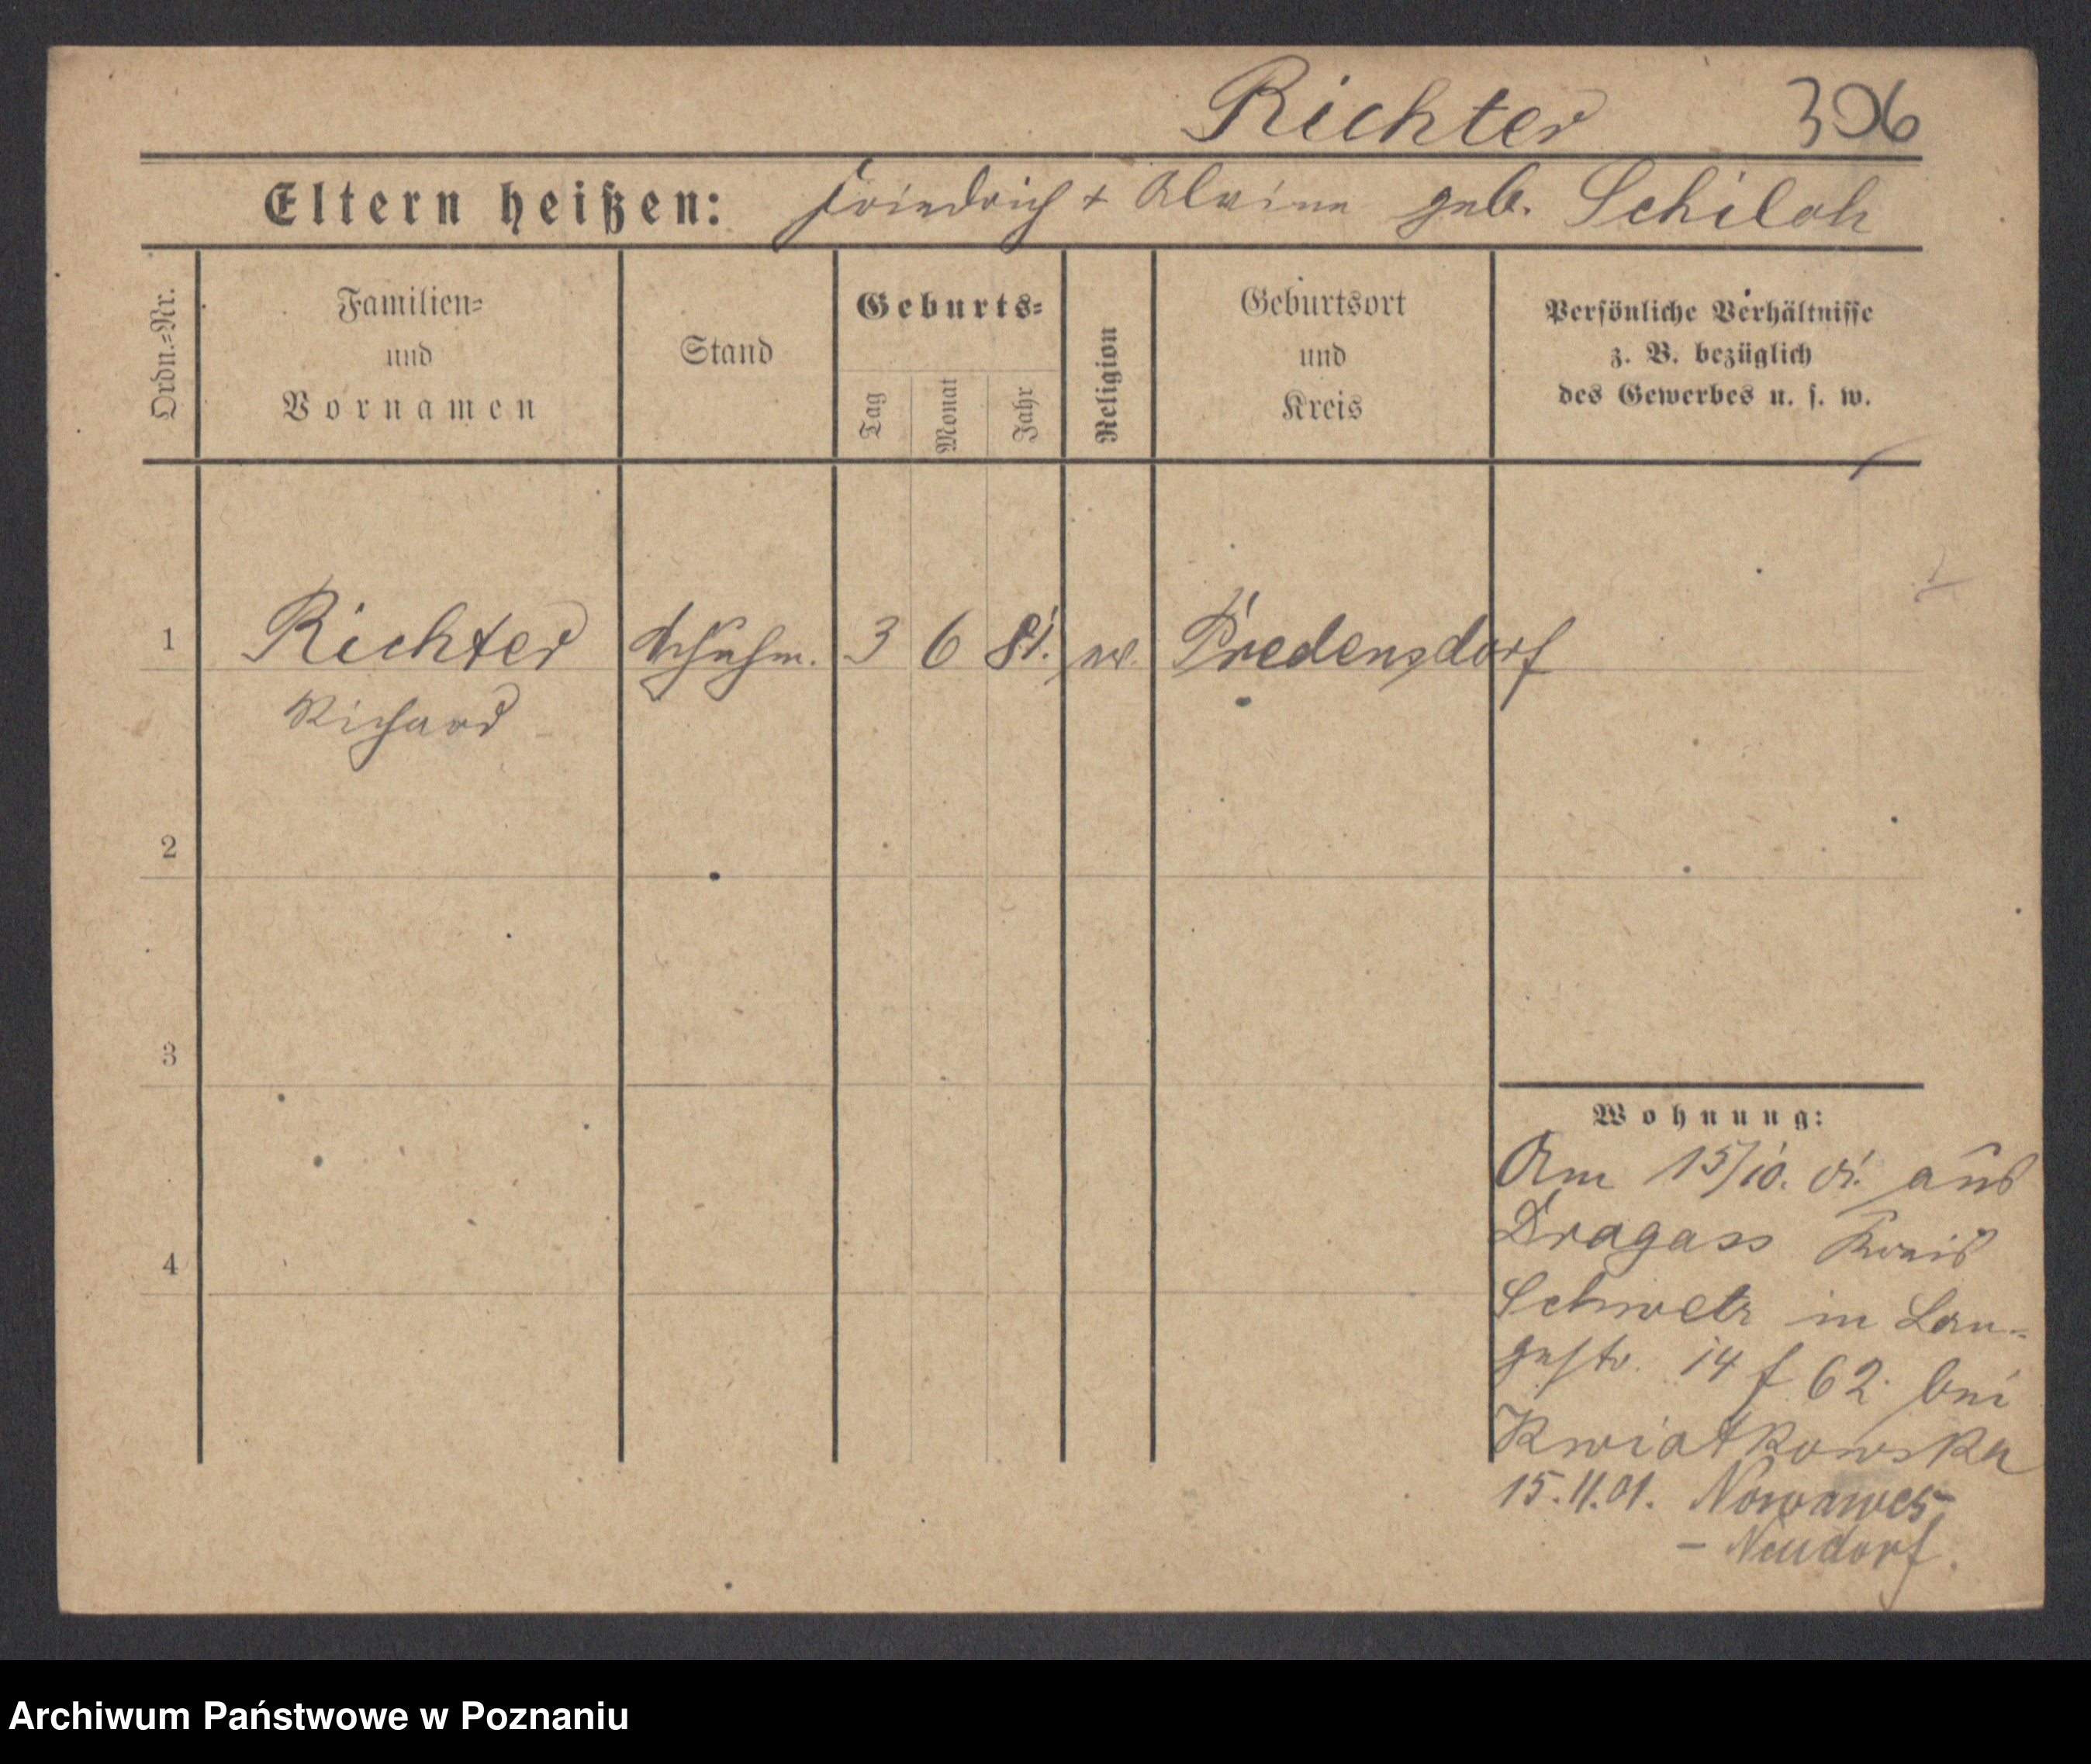 Richter 306
Eltern heißen: Friedrich + Alwine geb. Schiloh
Ordn.=Nr.
Familien=
und
Vornamen
Stand
Geburts=
Tag
Monat
Jahr
Religion
Geburtsort
und
Kreis
Persönliche Verhältnisse
z. B. bezüglich
des Gewerbes u. s. w.
1 Richter Schuhm. 3 6 81. ev. Predensdorf
Richard
2
3
4
Wohnung:
Am 15/10. 01. aus
Dragass Kreis
Schwetz in Lan=
gestr. 14 f 62. bei
Kwiatkowska
15.11.01. Nowawes
- Neudorf.
Archiwum Państwowe w Poznaniu